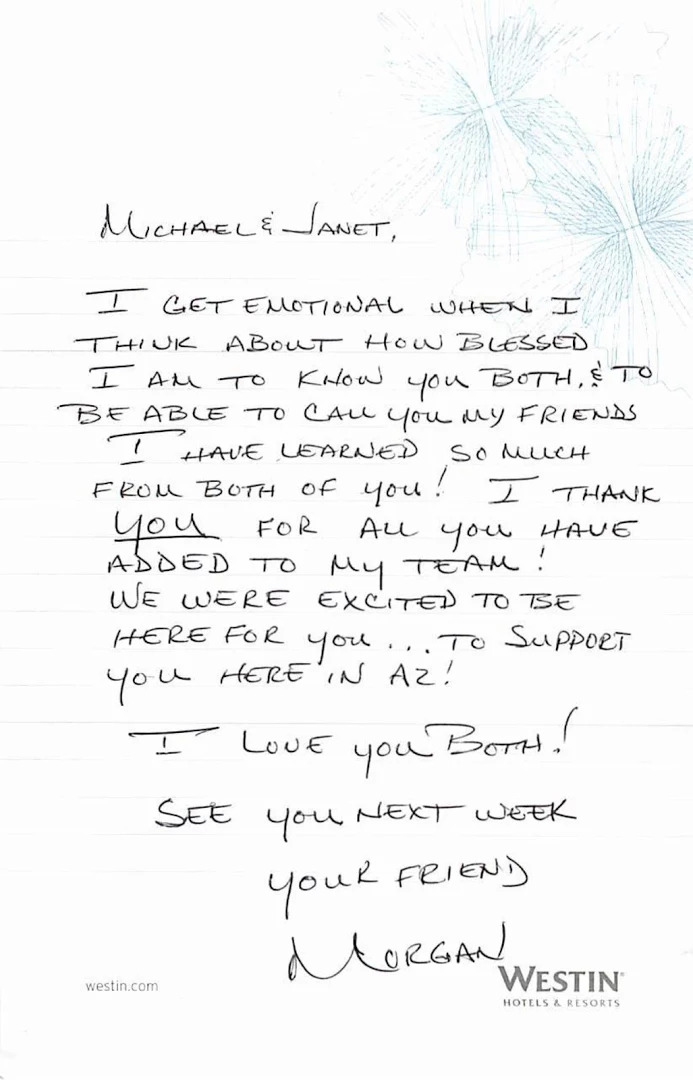 MICHAEL & JANET,
I GET EMOTIONAL WHEN I
THINK ABOUT HOW BLESSED
I AM TO KNOW YOU BOTH, & TO
BE ABLE TO CALL YOU MY FRIENDS
I HAVE LEARNED SO MUCH
FROM BOTH OF YOU! I THANK
YOU FOR ALL YOU HAVE
ADDED TO MY TEAM!
WE WERE EXCITED TO BE
HERE FOR YOU... TO SUPPORT
YOU HERE IN AZ!
I LOVE YOU BOTH!
SEE YOU NEXT WEEK
YOUR FRIEND
MORGAN
westin.com
WESTIN®
HOTELS & RESORTS